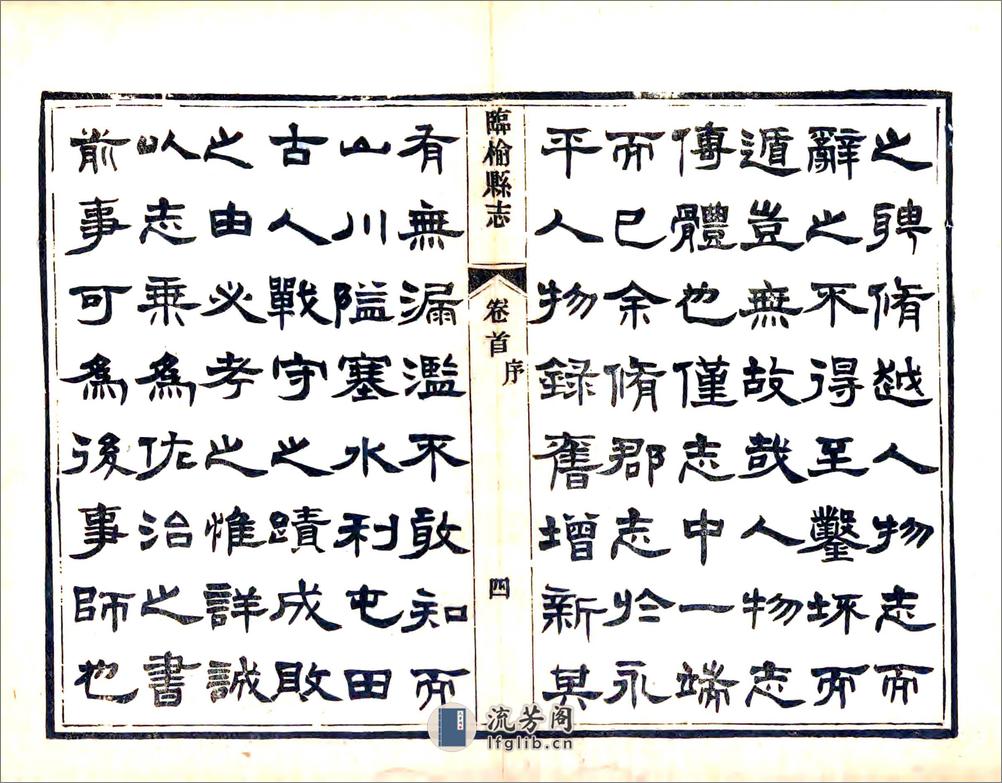 之聘脩越人物志而
辭之不得至鑿坏而
遁豈無故哉人物志
傳體也僅志中一端
而已余脩郡志於永
平人物錄舊增新其
臨榆縣志
卷首
序
四
有無漏濫不敢知而
山川隘塞水利屯田
古人戰守之蹟成敗
之由必考之惟詳誠
以志乘為佐治之書
前事可為後事師也
流芳阁
lfglib.cn